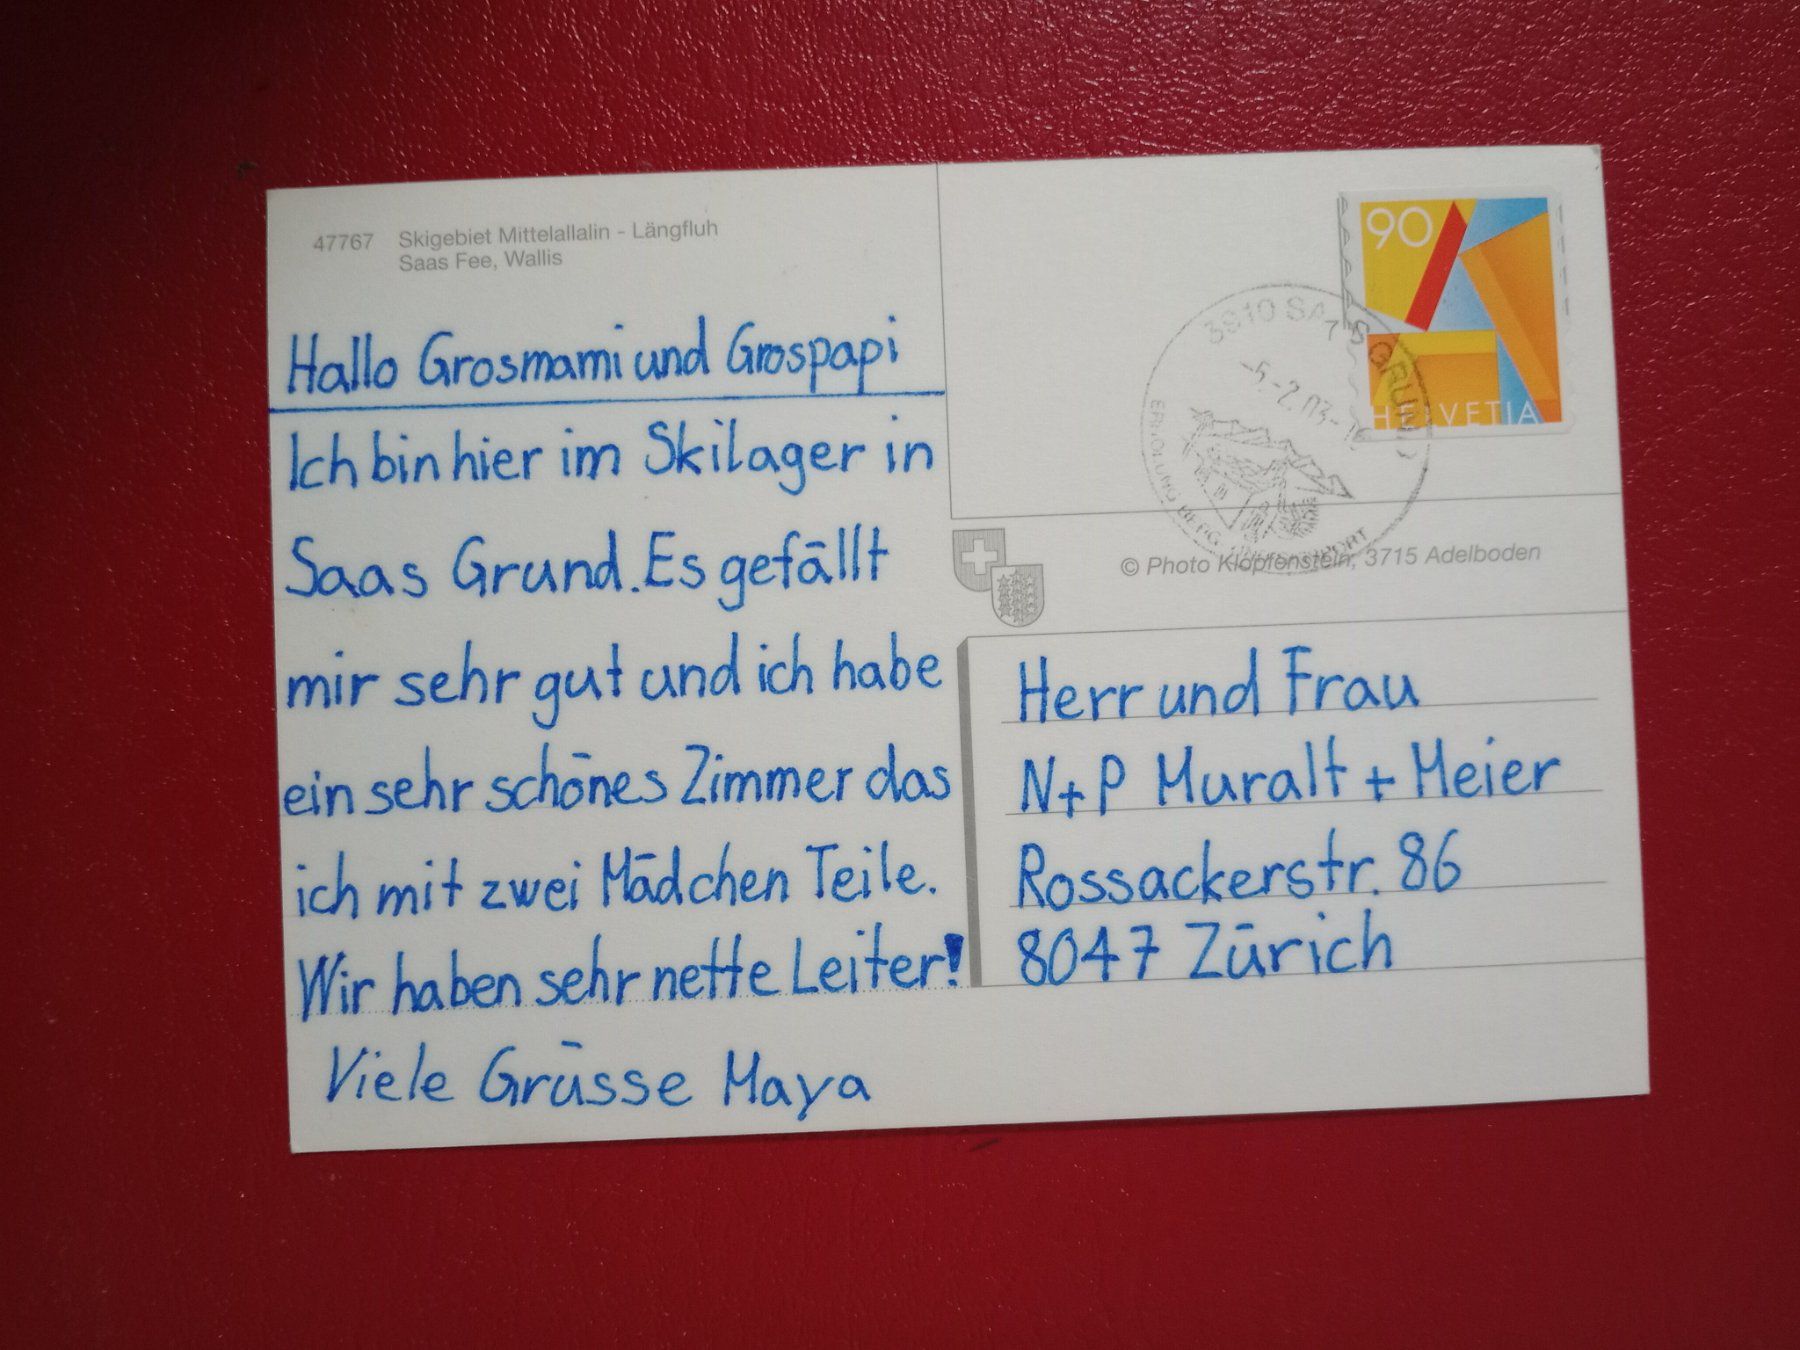 47767 Skigebiet Mittelallalin - Längfluh
Saas Fee, Wallis
Hallo Grosmami und Grospapi
Ich bin hier im Skilager in
Saas Grund. Es gefällt
mir sehr gut und ich habe
ein sehr schönes Zimmer das
ich mit zwei Mädchen Teile.
Wir haben sehr nette Leiter!
Viele Grüsse Maya
90
HELVETIA
3910 SAAS GRUND
-5.-2.03-
BERG
© Photo Klopfenstein, 3715 Adelboden
Herr und Frau
N+P Muralt + Meier
Rossackerstr. 86
8047 Zürich